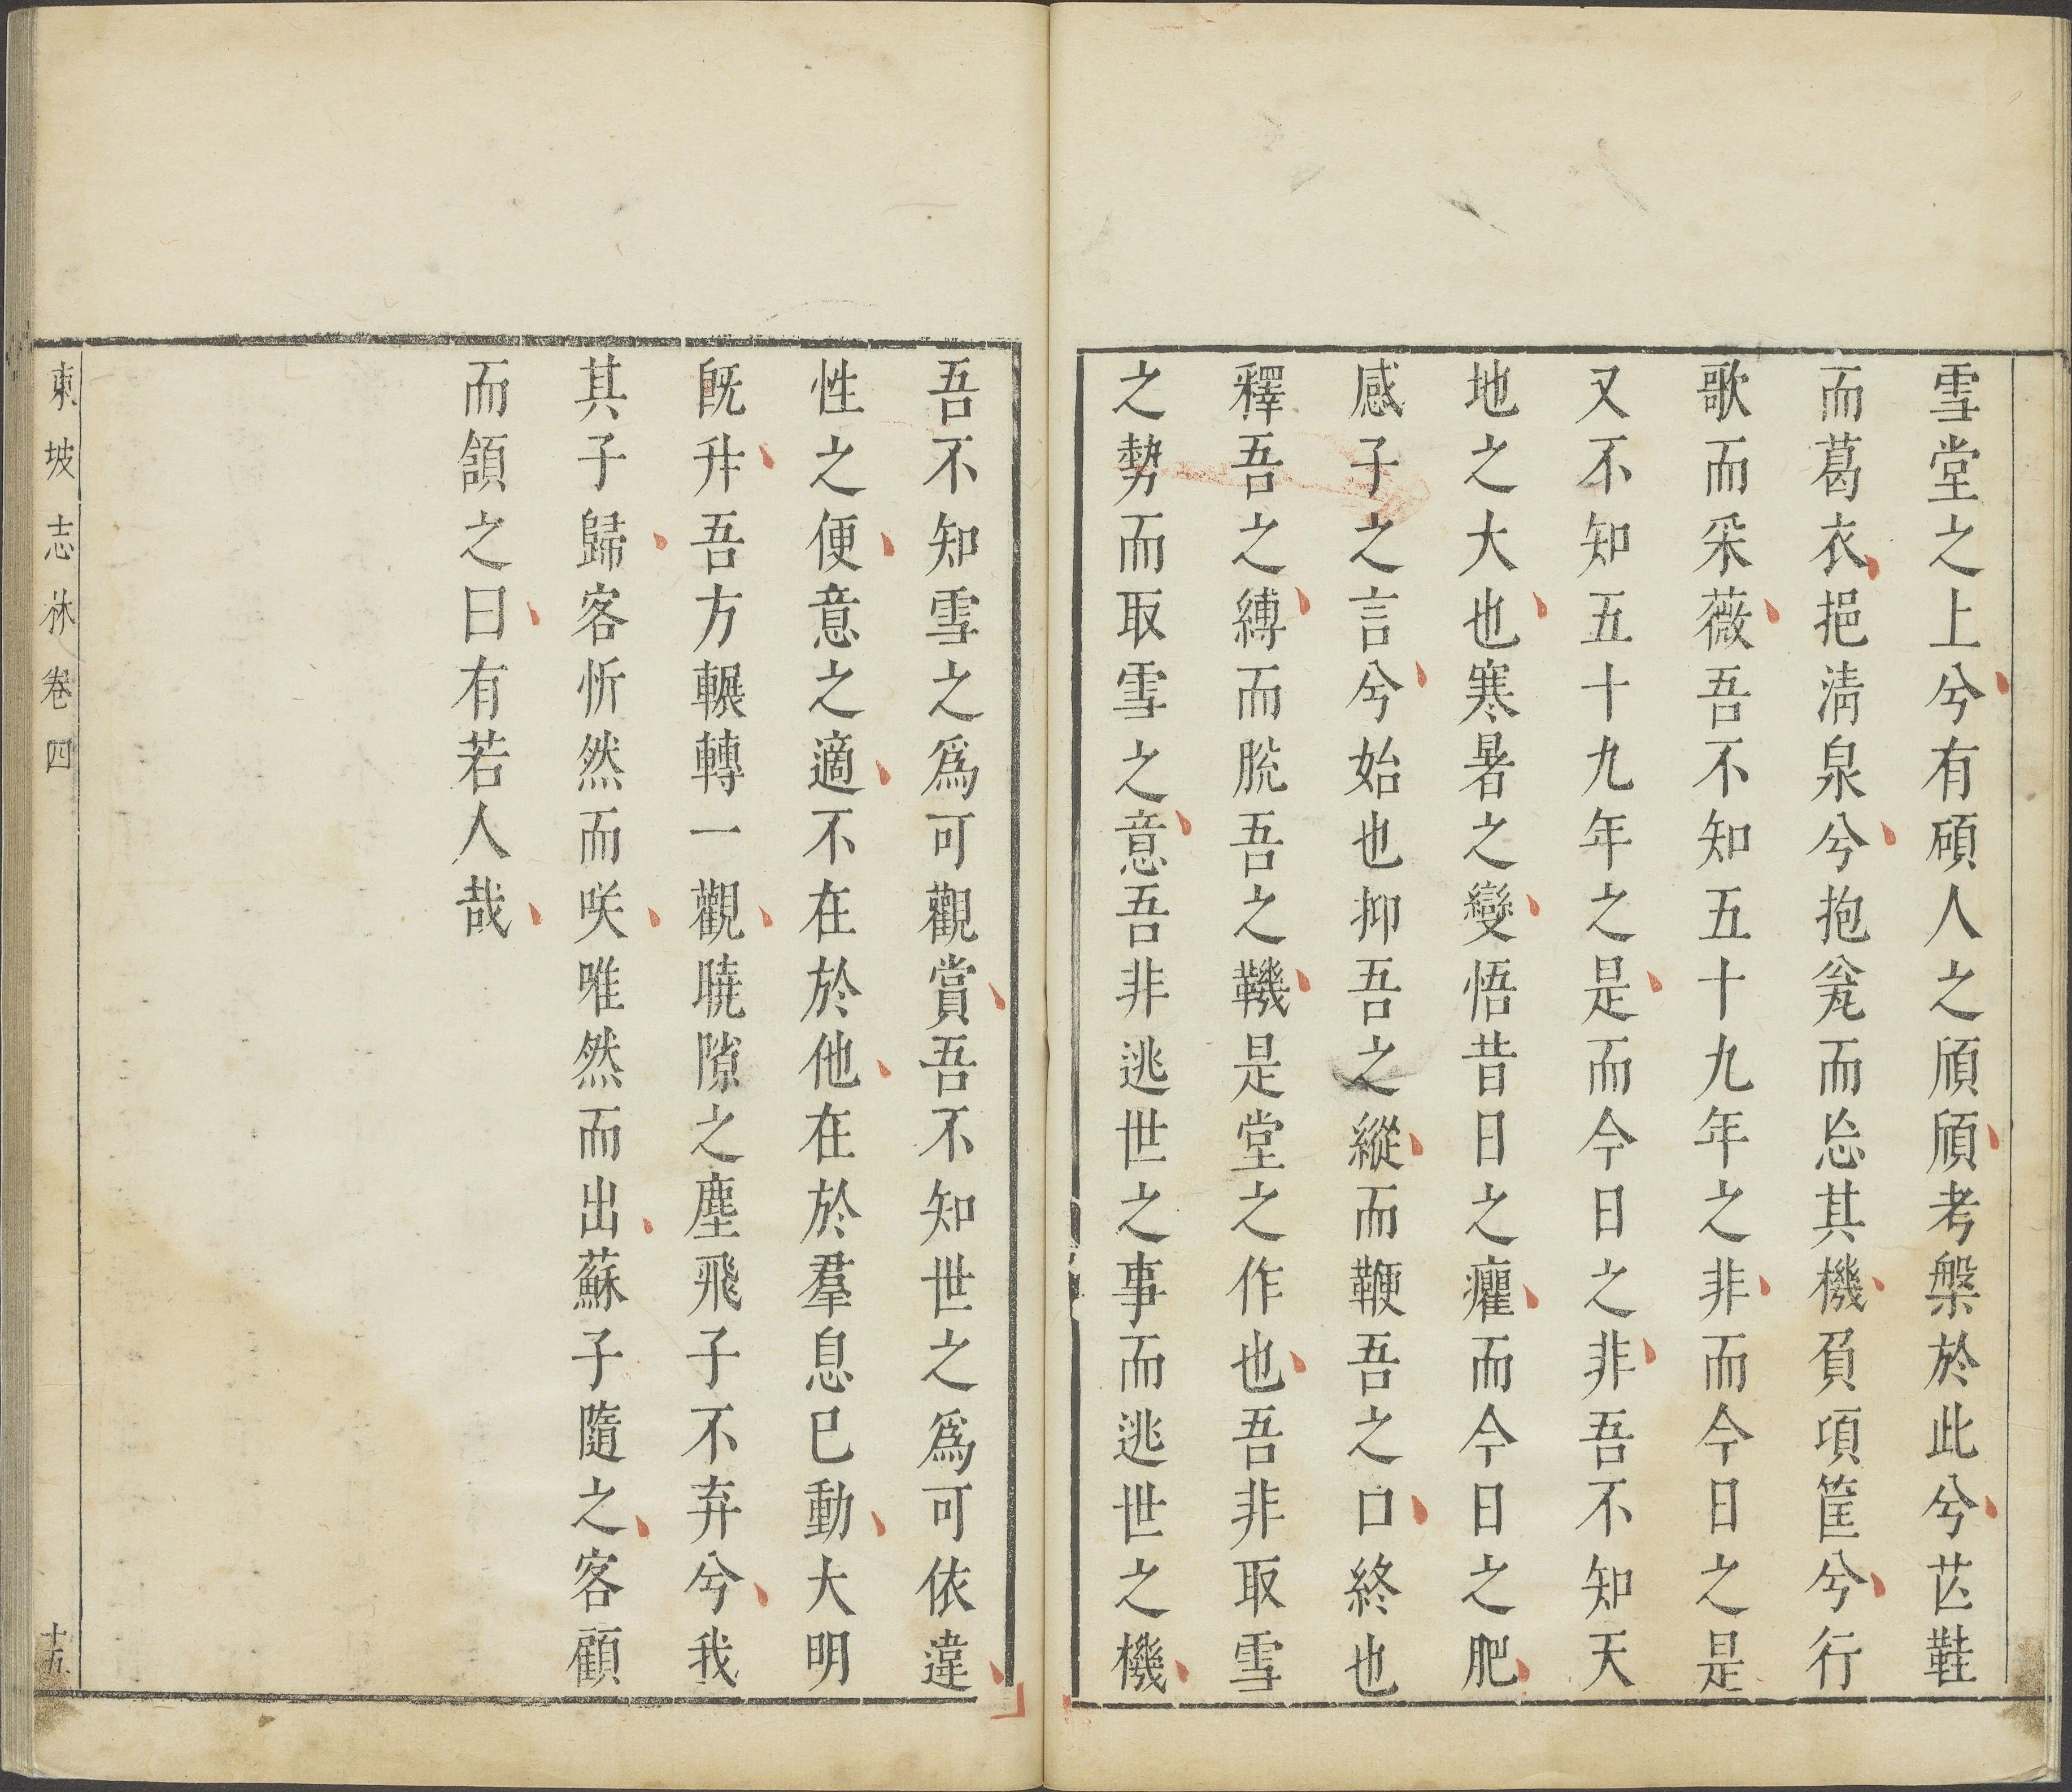 雪堂之上兮有碩人之頎頎考槃於此兮芒鞋
而葛衣挹淸泉兮抱瓮而忘其機負頃筐兮行
歌而采薇吾不知五十九年之非而今日之是
又不知五十九年之是而今日之非吾不知天
地之大也寒暑之變悟昔日之癯而今日之肥
感子之言兮始也抑吾之縱而鞭吾之口終也
釋吾之縛而脫吾之鞿是堂之作也吾非取雪
之勢而取雪之意吾非逃世之事而逃世之機
吾不知雪之爲可觀賞吾不知世之爲可依違
性之便意之適不在於他在於羣息已動大明
旣升吾方輾轉一觀曉隙之塵飛子不弃兮我
其子歸客忻然而咲唯然而出蘇子隨之客顧
而頷之曰有若人哉
東坡志林卷四
十五